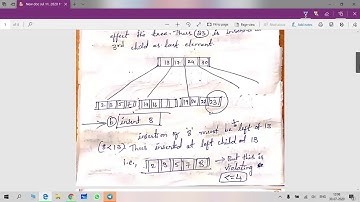 New doc Jul 31, 2020 1
effect the tree. Thus (23) is inserted in
3rd child as last element.
13 17 24 30
2 3 5 7 14 16 19 20 22 23
b) insert 8
insertion of '8' must be to left of 13
(8<13) Thus inserted at left child of 13
i.e., 2 3 5 7 8 → But this is
violating
<=4